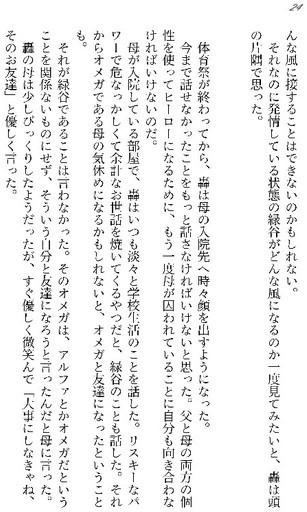 24
んな風に接することはできないのかもしれない。
それなのに発情している状態の緑谷がどんな風になるのか一度見てみたいと、轟は頭
の片隅で思った。
体育祭が終わってから、轟は母の入院先へ時々顔を出すようになった。
今まで話せなかったことをもっと話さなければいけないと思った。父と母の両方の個
性を使ってヒーローになるために、もう一度母が囚われていることに自分も向き合わな
ければいけないのだ。
母が入院している部屋で、轟はいつも淡々と学校生活のことを話した。リスキーなパ
ワーで危なっかしくて余計なお世話を焼いてくるやつだと、緑谷のことも話した。それ
からオメガである母の気休めになるかもしれないと、オメガと友達になったということ
も。
それが緑谷であることは言わなかった。そのオメガは、アルファとかオメガだという
ことを関係ないものにせず、そういう自分と友達になろうと言ったんだと母に言った。
轟の母は少しびっくりしたようだったが、すぐ優しく微笑んで「大事にしなきゃね、
そのお友達」と優しく言った。